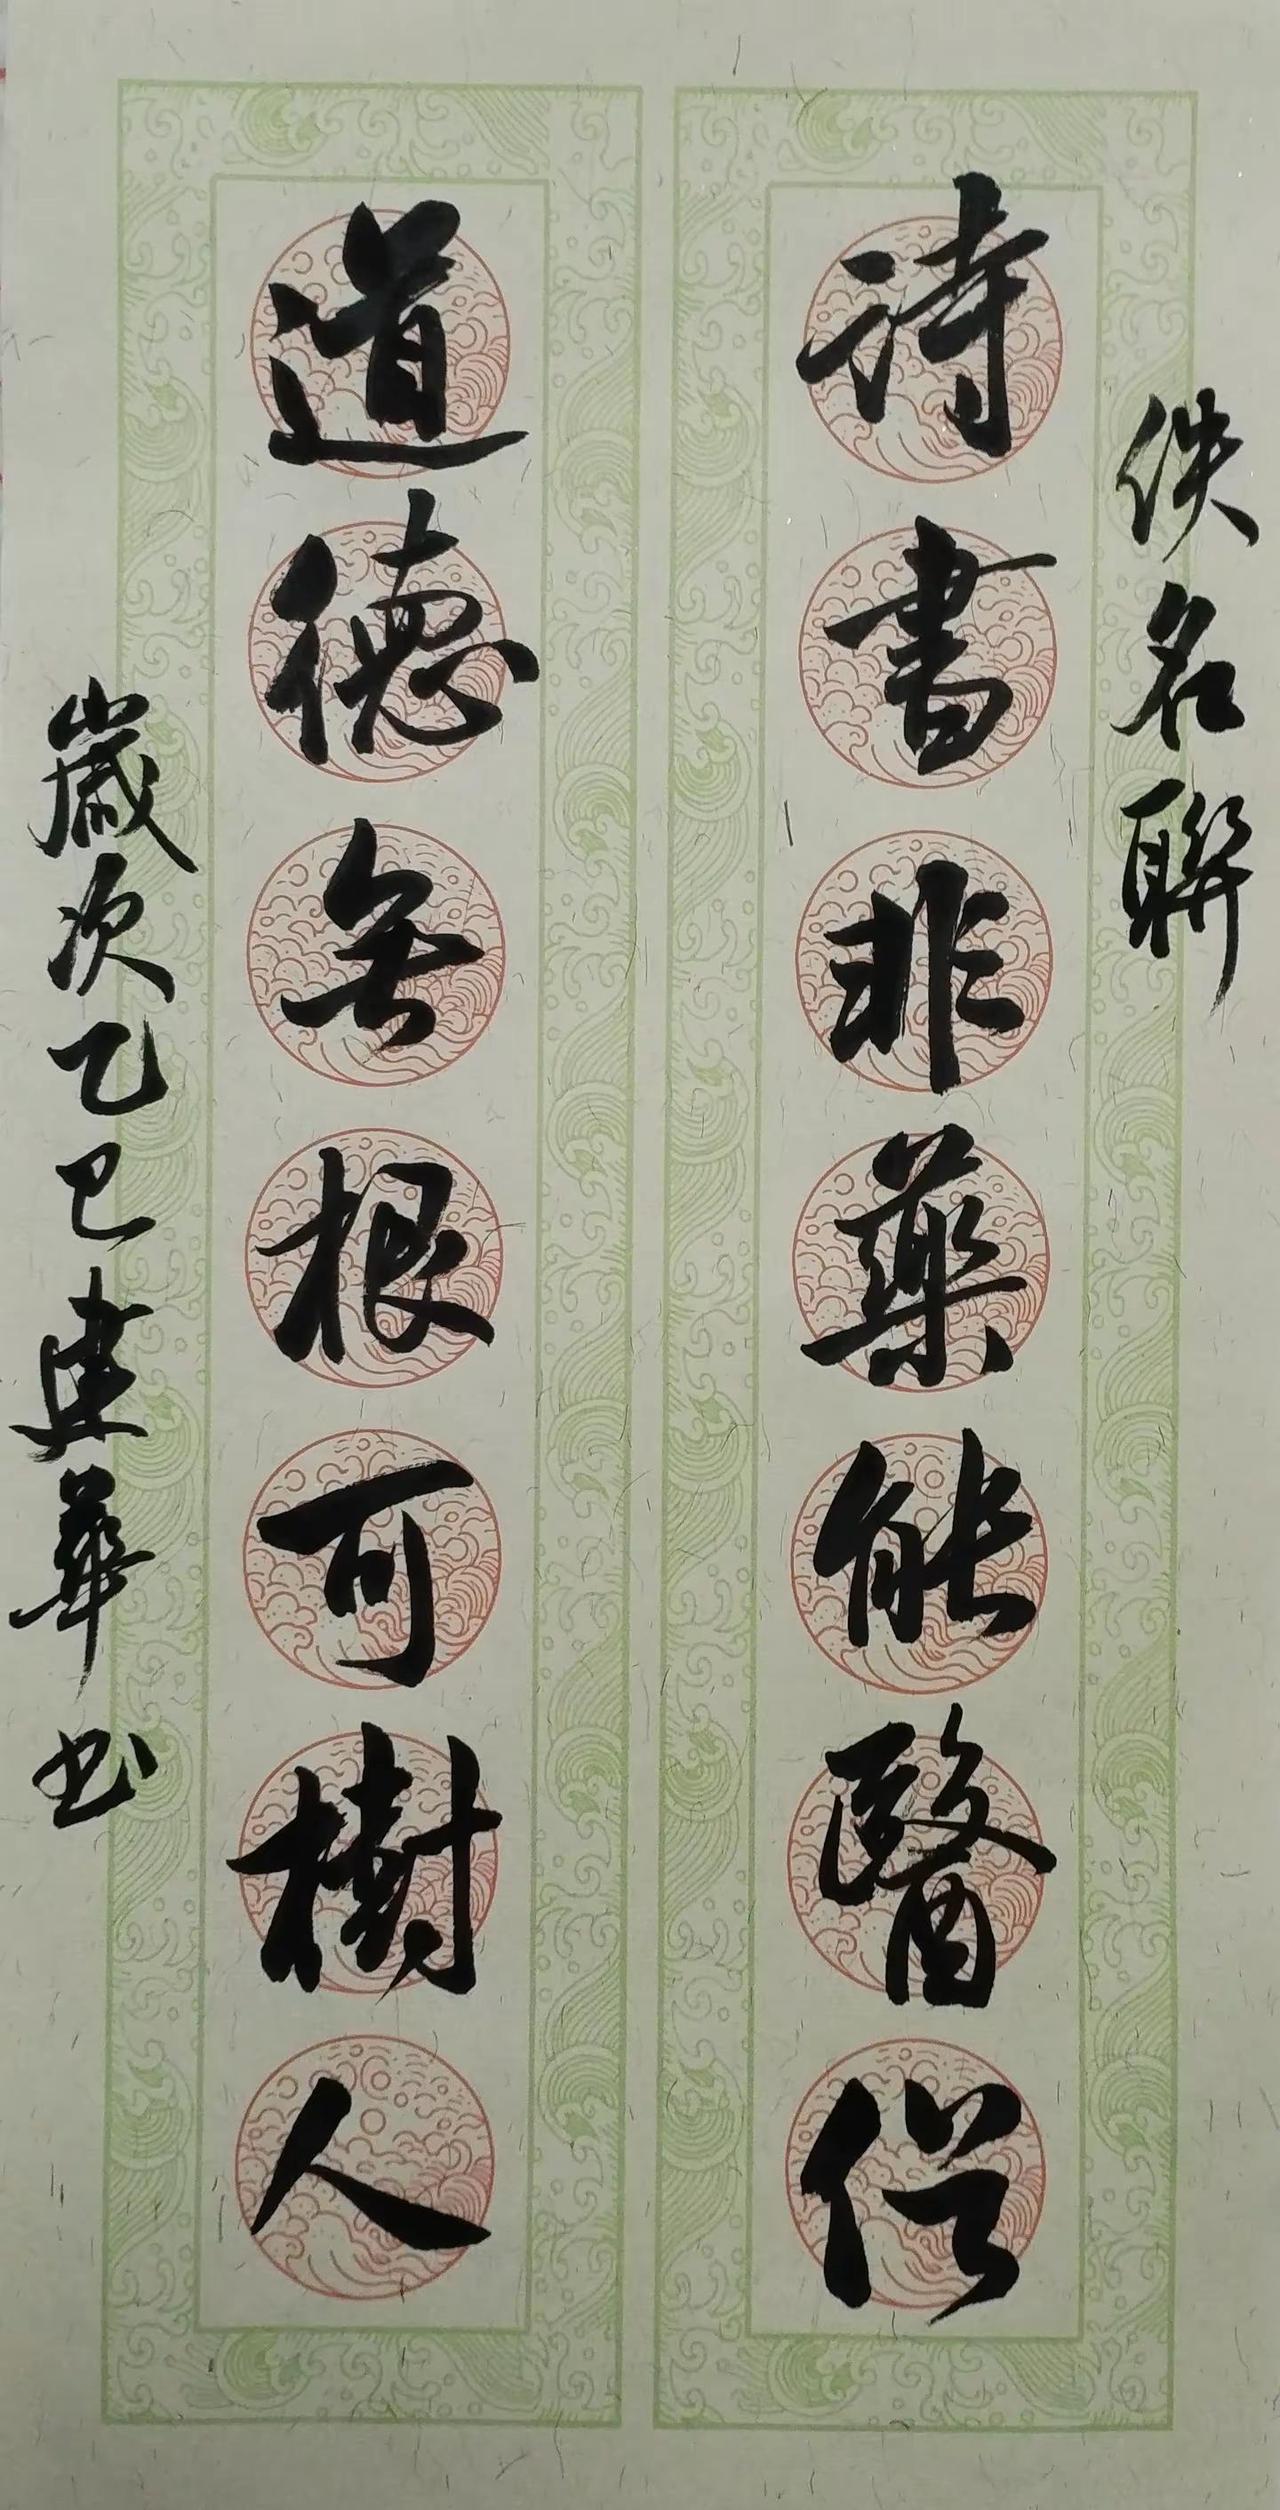 佚名聯
詩書非藥能醫俗
道德無根可樹人
歲次乙巳建華书